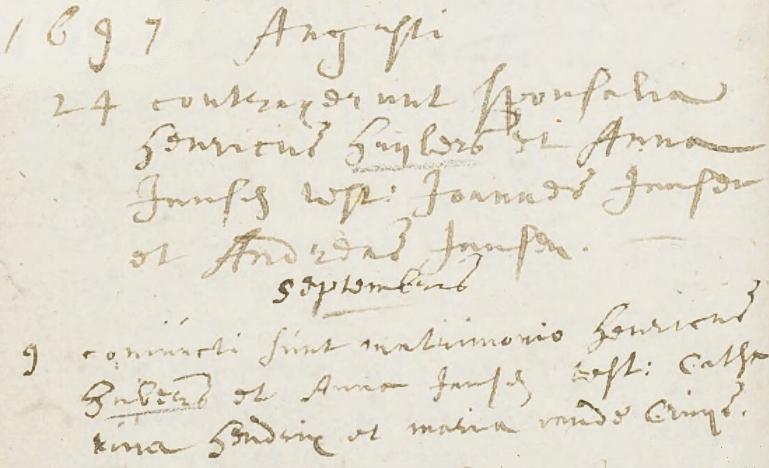 1697 Augusti
24 contraxerunt sponsalia
Henricus Huÿlers et Anna
Jansen test: Joannes Jansen
et Andreas Jansen.
Septembris
9 coniuncti sunt matrimonio Henricus
Huivers et Anna Jansen test: Catha
rina Hendrix et maria vande